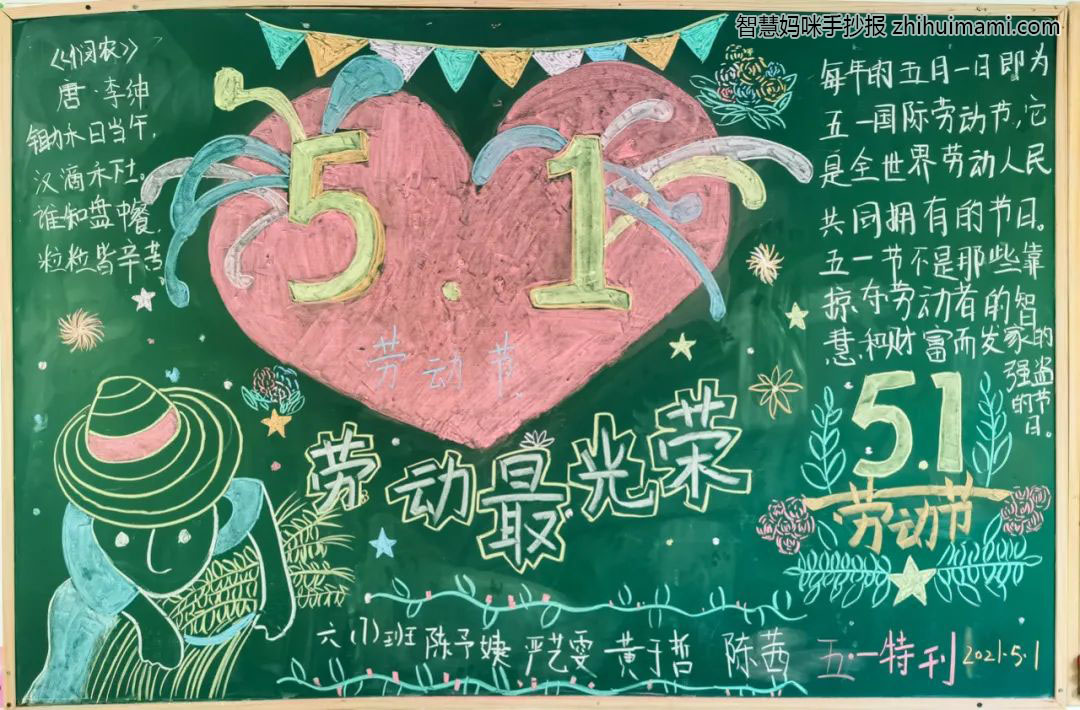 智慧妈咪手抄报 zhihuimami.com
《悯农》
唐·李绅
锄禾日当午,
汗滴禾下土。
谁知盘中餐,
粒粒皆辛苦
5.1
劳动节
劳动最光荣
每年的五月一日即为
五一国际劳动节,它
是全世界劳动人民
共同拥有的节日。
五一节不是那些靠
掠夺劳动者的智
慧和财富而发家的
强盗
的节
日。
5.1
劳动节
六(1)班 陈予婕 严艺雯 黄于哲 陈茜
五·一特刊 2021·5·1